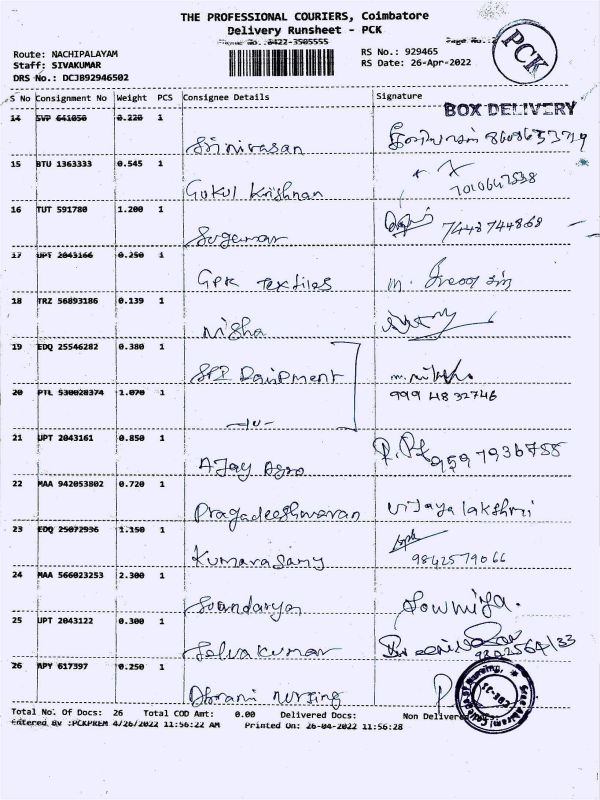 THE PROFESSIONAL COURIERS, Coimbatore
Delivery Runsheet - PCK
Phone No.:0422-3505555 Page No.:2
PCK
Route: NACHIPALAYAM RS No.: 929465
Staff: SIVAKUMAR RS Date: 26-Apr-2022
DRS No.: DCJB92946502
S No Consignment No Weight PCS Consignee Details Signature
BOX DELIVERY
14 SVP 641050 0.220 1
Srinivasan
15 BTU 1363333 0.545 1
Gokul Krishnan
16 TUT 591780 1.200 1
Sugumar 7448744868
17 UPT 2043166 0.250 1
GPK Textiles m.
18 TRZ 56893186 0.139 1
Nisha
19 EDQ 25546282 0.380 1
SPI
20 PTL 530028374 1.070 1 999 48 32746
21 UPT 2043161 0.850 1 9597936755
Ajay Agro
22 MAA 942053802 0.720 1
Pragadeeshwaran Vijayalakshmi
23 EDQ 25072936 1.150 1
Kumarasamy 9842579066
24 MAA 566023253 2.300 1
Soundarya Sowmiya.
25 UPT 2043122 0.300 1
Selvakumar
26 APY 617397 0.250 1
Nursing
Total No. Of Docs: 26 Total COD Amt: 0.00 Delivered Docs: Non Delivered
Entered By :PCKPREM 4/26/2022 11:56:22 AM Printed On: 26-04-2022 11:56:28